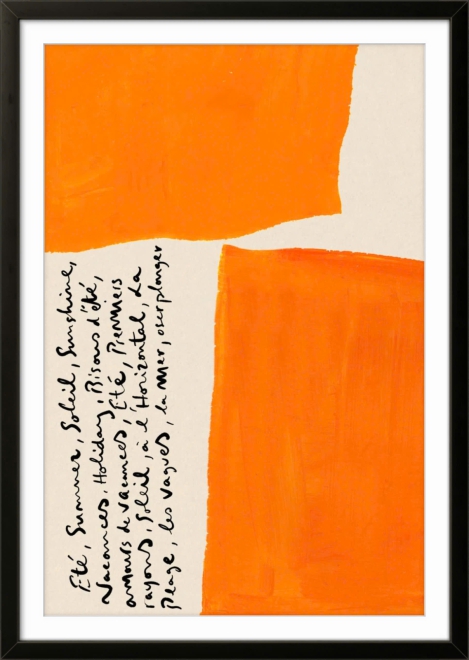 Eté, Summer, Soleil, Sunshine,
Vacances, Holiday, Bisous d'été,
amours de vacances, Eté, Premiers
rayons, Soleil, à l'Horizontal, La
plage, les vagues, la mer, oser plonger